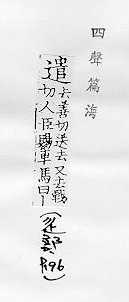 四聲篇海
遣去善切送去又去戰
切人臣賜車馬曰
(辵部
P.96)